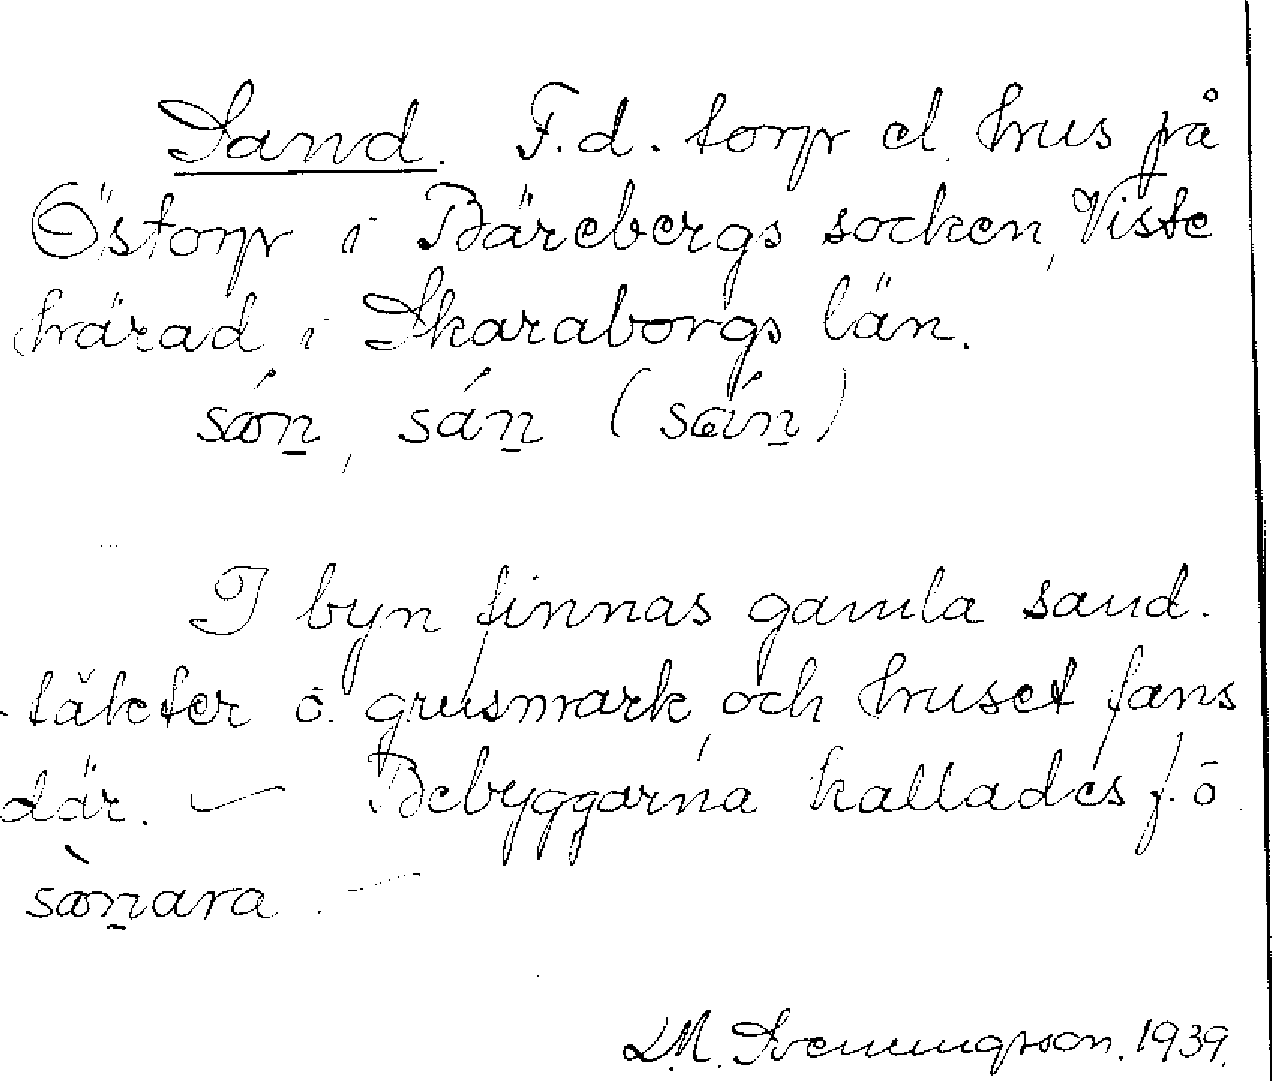 Sand. F.d. torp el. hus på
Östorp i Bärebergs socken, Viste
härad i Skaraborgs län.
sɷ́n̲, sán̲ (sɑ́n̲)
I byn finnas gamla sand-
täkter o. grusmark, och huset fans
där. — Bebyggarna kallades f. ö.
L.M. Svenungsson. 1939.